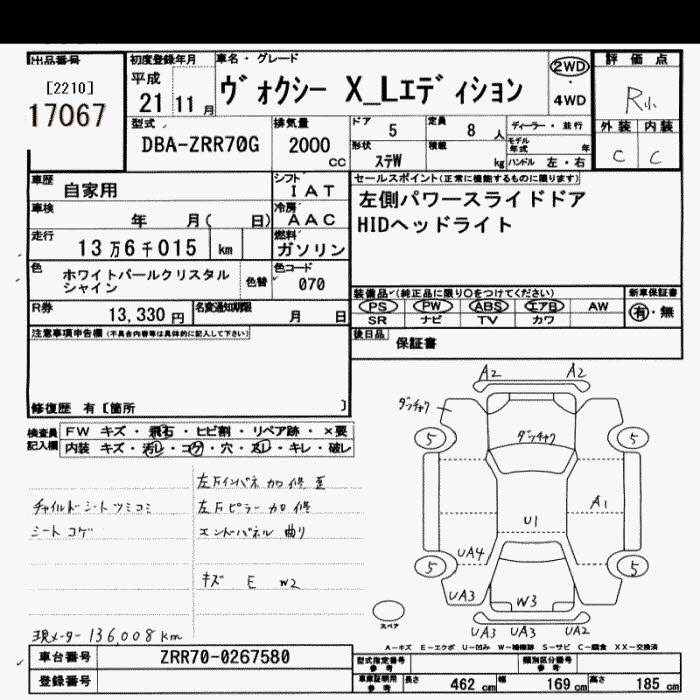 出品番号
[2210]
17067
初度登録年月
平成
21 11 月
車名・グレード
ヴォクシー X_Lエディション
2WD
4WD
評価点
R小
外装 内装
C C
型式
DBA-ZRR70G
排気量
2000
CC
ドア 5
定員 8 人
ディーラー・並行
形状
ステW
積載 kg
モデル年式 年
ハンドル 左・右
車歴 自家用
シフト
IAT
車検 年 月( 日)
冷房
AAC
走行 13万6千015 km
燃料
ガソリン
色 ホワイトパールクリスタル
シャイン
色替
色コード
070
R券 13,330 円
名変通知期限 月 日
セールスポイント(正常に機能するものに限ります)
左側パワースライドドア
HIDヘッドライト
装備品(純正品に限り○をつけてください)
PS PW ABS エアB AW
SR ナビ TV カワ
新車保証書
有・無
後日品 保証書
注意事項申告欄(不具合内容等は具体的に記入して下さい)
修復歴 有〔箇所 〕
検査員
記入欄
FW キズ・飛石・ヒビ割・リペア跡・×要
内装 キズ・汚レ・コゲ・穴・スレ・キレ・破レ
左Fインパネ加修歪
チャイルドシートツミコミ
左Fピラー加修
シートコゲ
エンドパネル曲り
キズ E W2
現メーター 136,008km
A2 A2
ダッチャク
5 5
ダッチャク
A1
U1
UA4
5 5
UA3
W3
UA3 UA3 UA2
スペア
A-キズ E-エクボ U-凹み W-補修跡 S-サビ C-腐食 XX-交換済
車台番号 ZRR70-0267580
登録番号
型式指定番号
参考
類別区分番号
参考
車庫証明用
参考
長さ 462 cm 幅 169 cm 高さ 185 cm